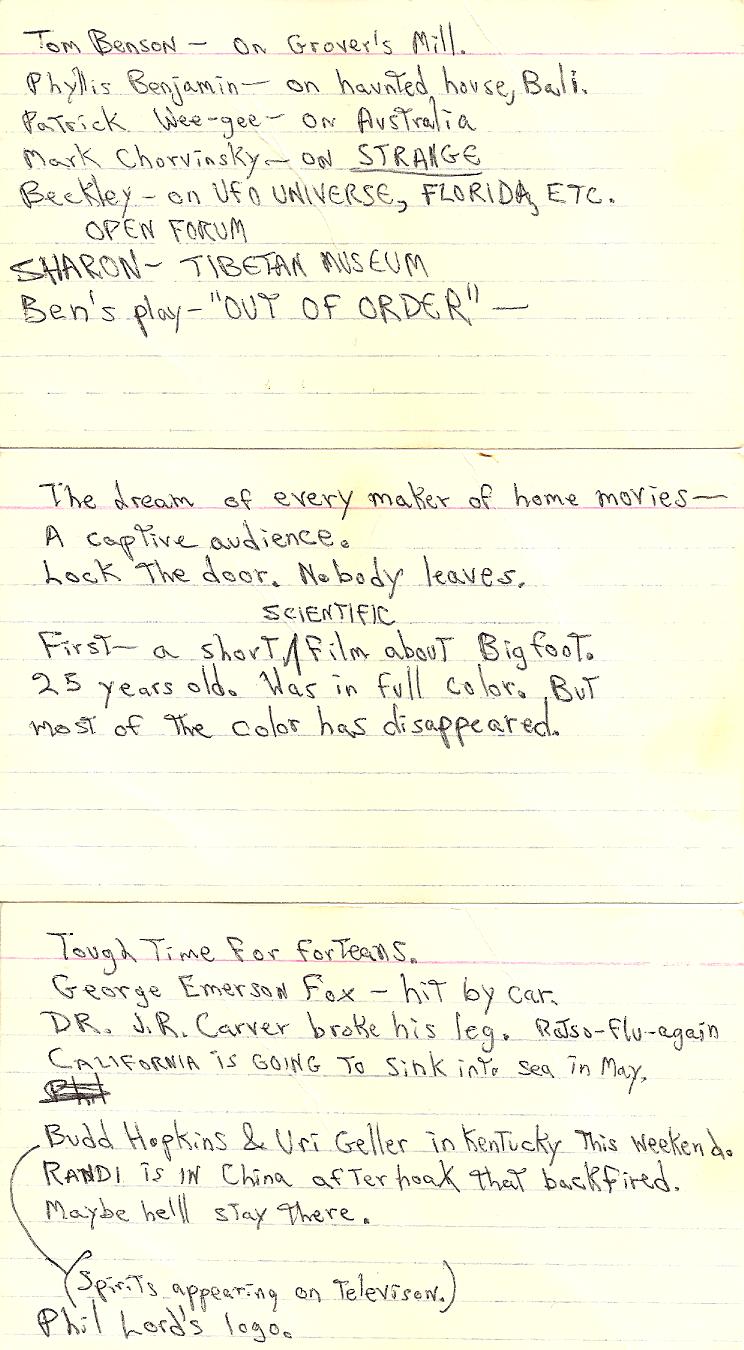 Tom Benson - on Grover's Mill.
Phyllis Benjamin - on haunted house, Bali.
Patrick Wee-gee - on Australia
Mark Chorvinsky - on STRANGE
Beckley - on UFO UNIVERSE, FLORIDA, ETC.
OPEN FORUM
SHARON - TIBETAN MUSEUM
Ben's play - "OUT OF ORDER" —
The dream of every maker of home movies —
A captive audience.
Lock the door. Nobody leaves.
SCIENTIFIC
First - a short film about Bigfoot.
25 years old. Was in full color. But
most of the color has disappeared.
Tough Time For forteans.
George Emerson Fox - hit by car.
DR. J.R. Carver broke his leg. Ratso-flu-again
CALIFORNIA is GOING TO sink into sea in May.
Budd Hopkins & Uri Geller in Kentucky this weekend.
RANDI is IN China after hoak that backfired.
Maybe he'll stay there.
(Spirits appearing on Televison.)
Phil Lord's logo.